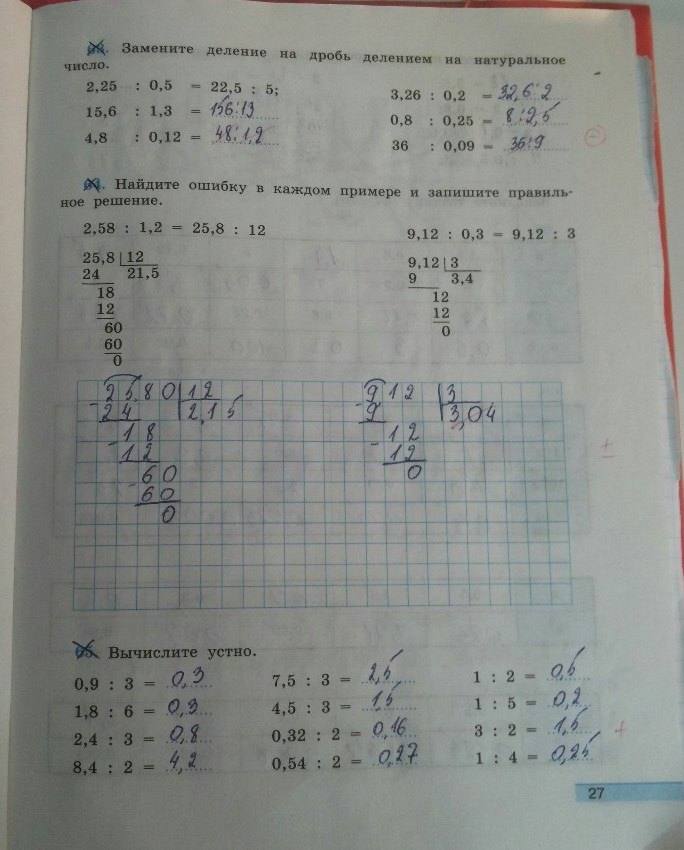 63. Замените деление на дробь делением на натуральное
число.
2,25 : 0,5 = 22,5 : 5;
15,6 : 1,3 = 156:13
4,8 : 0,12 = 48:1,2
3,26 : 0,2 = 32,6:2
0,8 : 0,25 = 8:2,5
36 : 0,09 = 36:9
64. Найдите ошибку в каждом примере и запишите правиль-
ное решение.
2,58 : 1,2 = 25,8 : 12
25,8 12
24 21,5
18
12
60
60
0
9,12 : 0,3 = 9,12 : 3
9,12 3
9 3,4
12
12
0
25,80 12
-24 2,15
-18
12
-60
60
0
912 3
-9 3,04
-12
12
0
±
65. Вычислите устно.
0,9 : 3 = 0,3
1,8 : 6 = 0,3
2,4 : 3 = 0,8
8,4 : 2 = 4,2
7,5 : 3 = 2,5
4,5 : 3 = 1,5
0,32 : 2 = 0,16
0,54 : 2 = 0,27
1 : 2 = 0,5
1 : 5 = 0,2
3 : 2 = 1,5
1 : 4 = 0,25
+
27